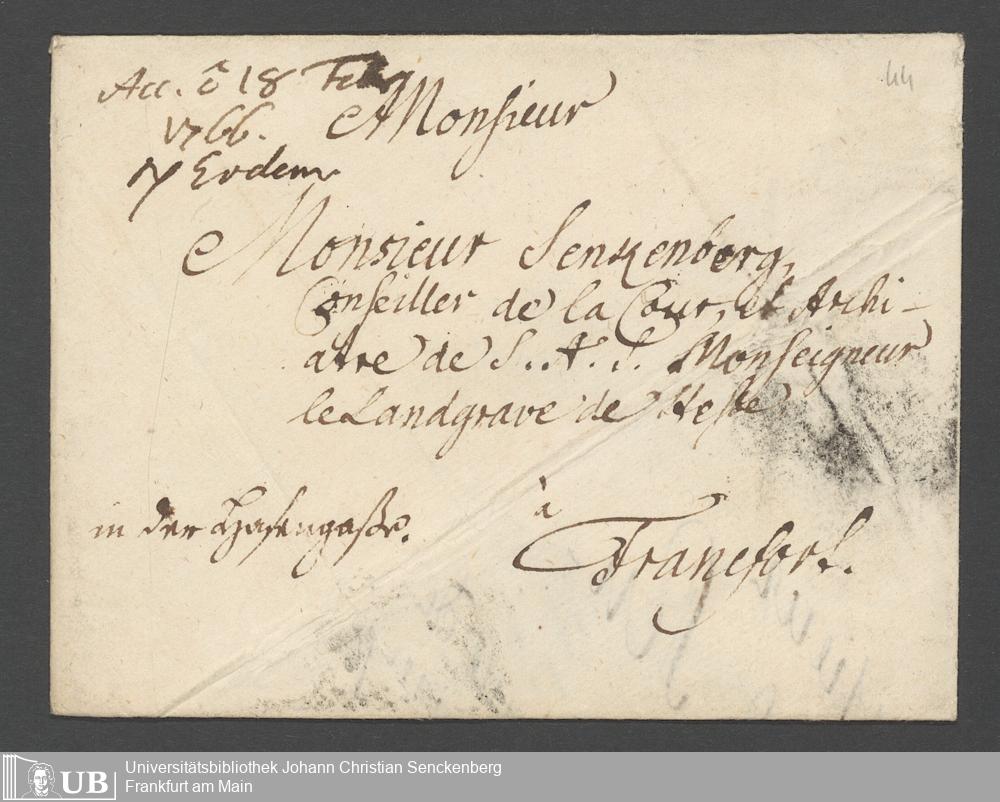 44
Acc. d 18 Febr
1766.
Monsieur
Eodem
Monsieur Senkenberg,
Conseiller de la Cour, et Archi-
atre de S. A. S. Monseigneur
le Landgrave de Hesse
à
in der Hasengaße.
Francfort.
UB
Universitätsbibliothek Johann Christian Senckenberg
Frankfurt am Main